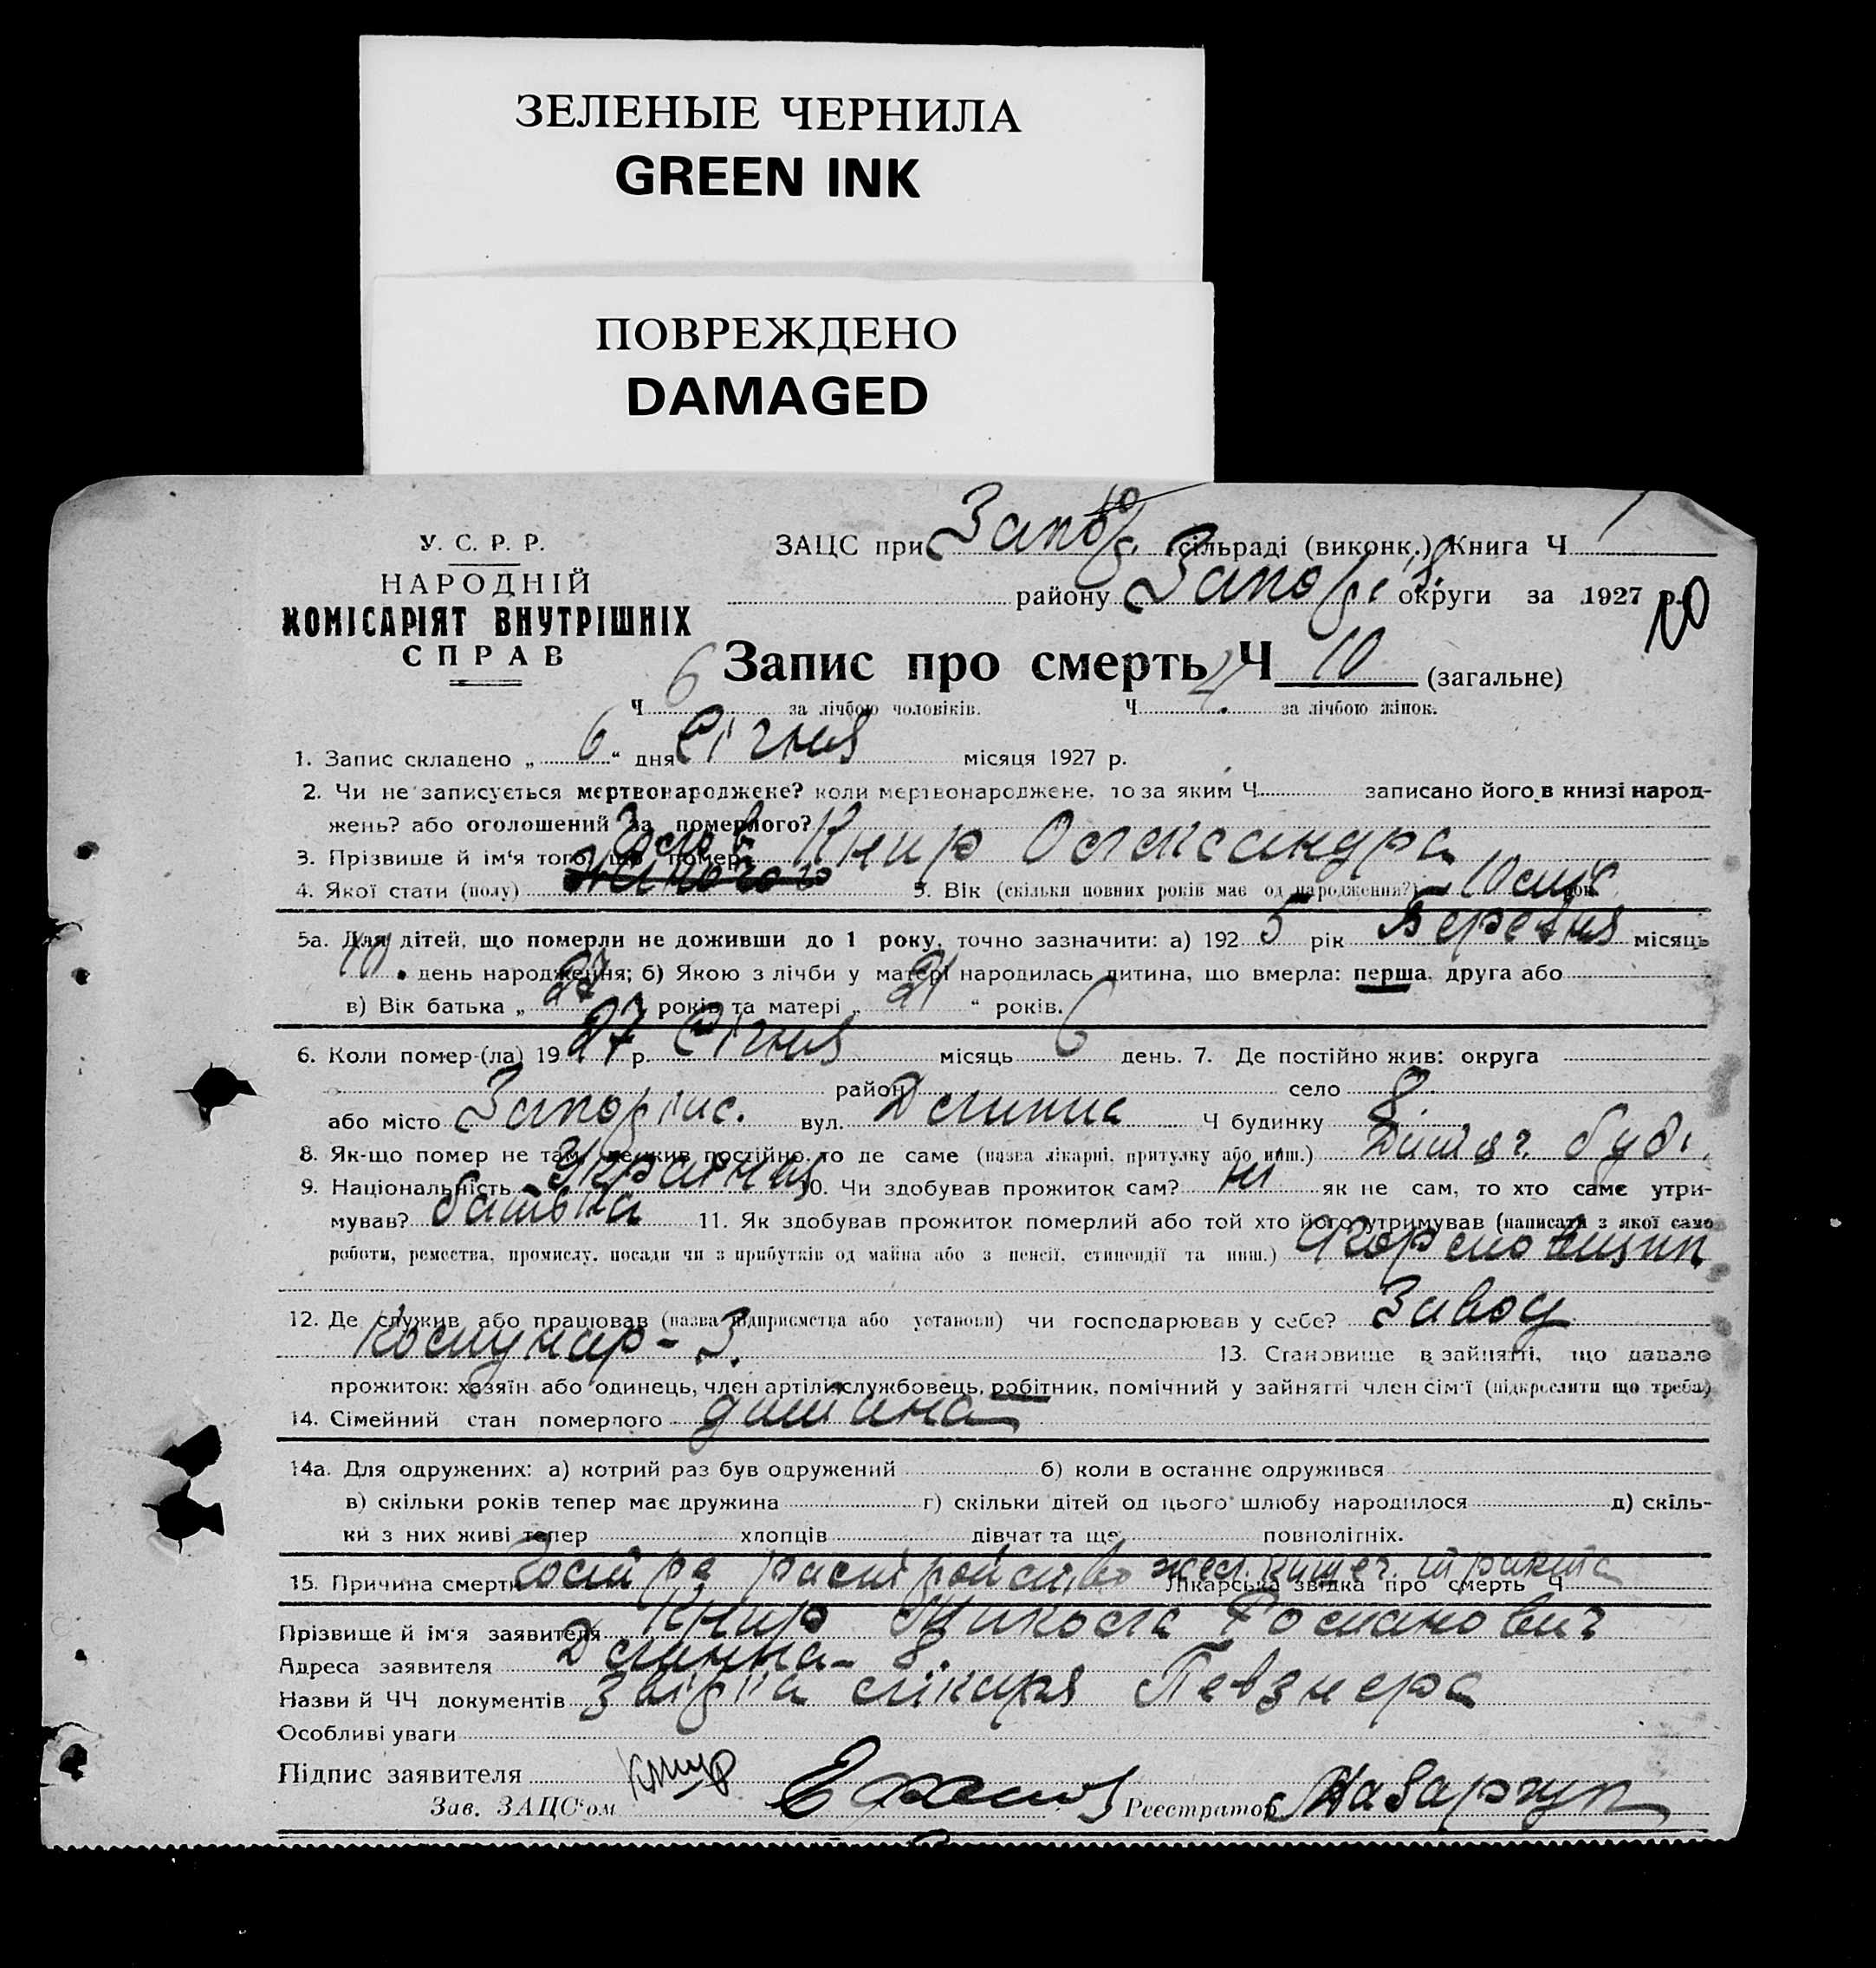 ЗЕЛЕНЫЕ ЧЕРНИЛА
GREEN INK
ПОВРЕЖДЕНО
DAMAGED
У. С. Р. Р.
НАРОДНІЙ
КОМІСАРІЯТ ВНУТРІШНІХ
СПРАВ
ЗАЦС при Запоріз. сільраді (виконк.) Книга Ч
району Запоріз. округи за 1927 р.
10
Запис про смерть Ч 10 (загальне)
Ч 6 за лічбою чоловіків. Ч 4 за лічбою жінок.
1. Запис складено „ 6 “ дня Січня місяця 1927 р.
2. Чи не записується мертвонароджене? коли мертвонароджене, то за яким Ч записано його в книзі народ-
жень? або оголошений за померлого?
3. Прізвище й ім‘я того, що помер Книр Олександра
4. Якої стати (полу) Чолов 5. Вік (скільки повних років має од народження?) 10 рок
5а. Для дітей, що померли не доживши до 1 року, точно зазначити: а) 192 5 рік Березня місяць
10 день народження; б) Якою з лічби у матері народилась дитина, що вмерла: перша, друга або
в) Вік батька „ 27 “ років та матері „ 21 “ років.
6. Коли помер-(ла) 19 27 р. Січня місяць 6 день. 7. Де постійно жив: округа
район село
або місто Запоріж. вул. Долинна Ч будинку 8.
8. Як-що помер не там, де жив постійно, то де саме (назва лікарні, притулку або инш.) Дитяч. буд.
9. Національність Україн 10. Чи здобував прожиток сам? ні як не сам, то хто саме утри-
мував? батька 11. Як здобував прожиток померлий або той хто його утримував (написати з якої само
роботи, ремества, промислу, посади чи з прибутків од майна або з пенсії, стипендії та инш.) Формовщик
12. Де служив або працював (назва підприємства або установи) чи господарював у себе? Завод
Комунар - 3. 13. Становище в зайнятті, що давало
прожиток: хазяїн або одинець, член артілі, службовець, робітник, помічний у зайнятті член сім‘ї (підкреслити що треба)
14. Сімейний стан померлого дитина
14а. Для одружених: а) котрий раз був одружений б) коли в останнє одружився
в) скільки років тепер має дружина г) скільки дітей од цього шлюбу народилося д) скіль-
ки з них живі тепер хлопців дівчат та ще повнолітніх.
15. Причина смерти Лікарська звідка про смерть Ч
Прізвище й ім‘я заявителя Книр Микола Романович
Адреса заявителя Долинна - 8
Назви й ЧЧ документів Звідка лікаря Певзнера
Особливі уваги
Підпис заявителя Книр
Зав. ЗАЦС‘ом Реєстратор Назарчук